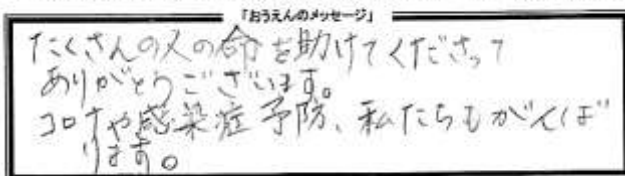 「おうえんのメッセージ」
たくさんの人の命を助けてくださって
ありがとうございます。
コロナや感染症予防、私たちもがんば
ります。